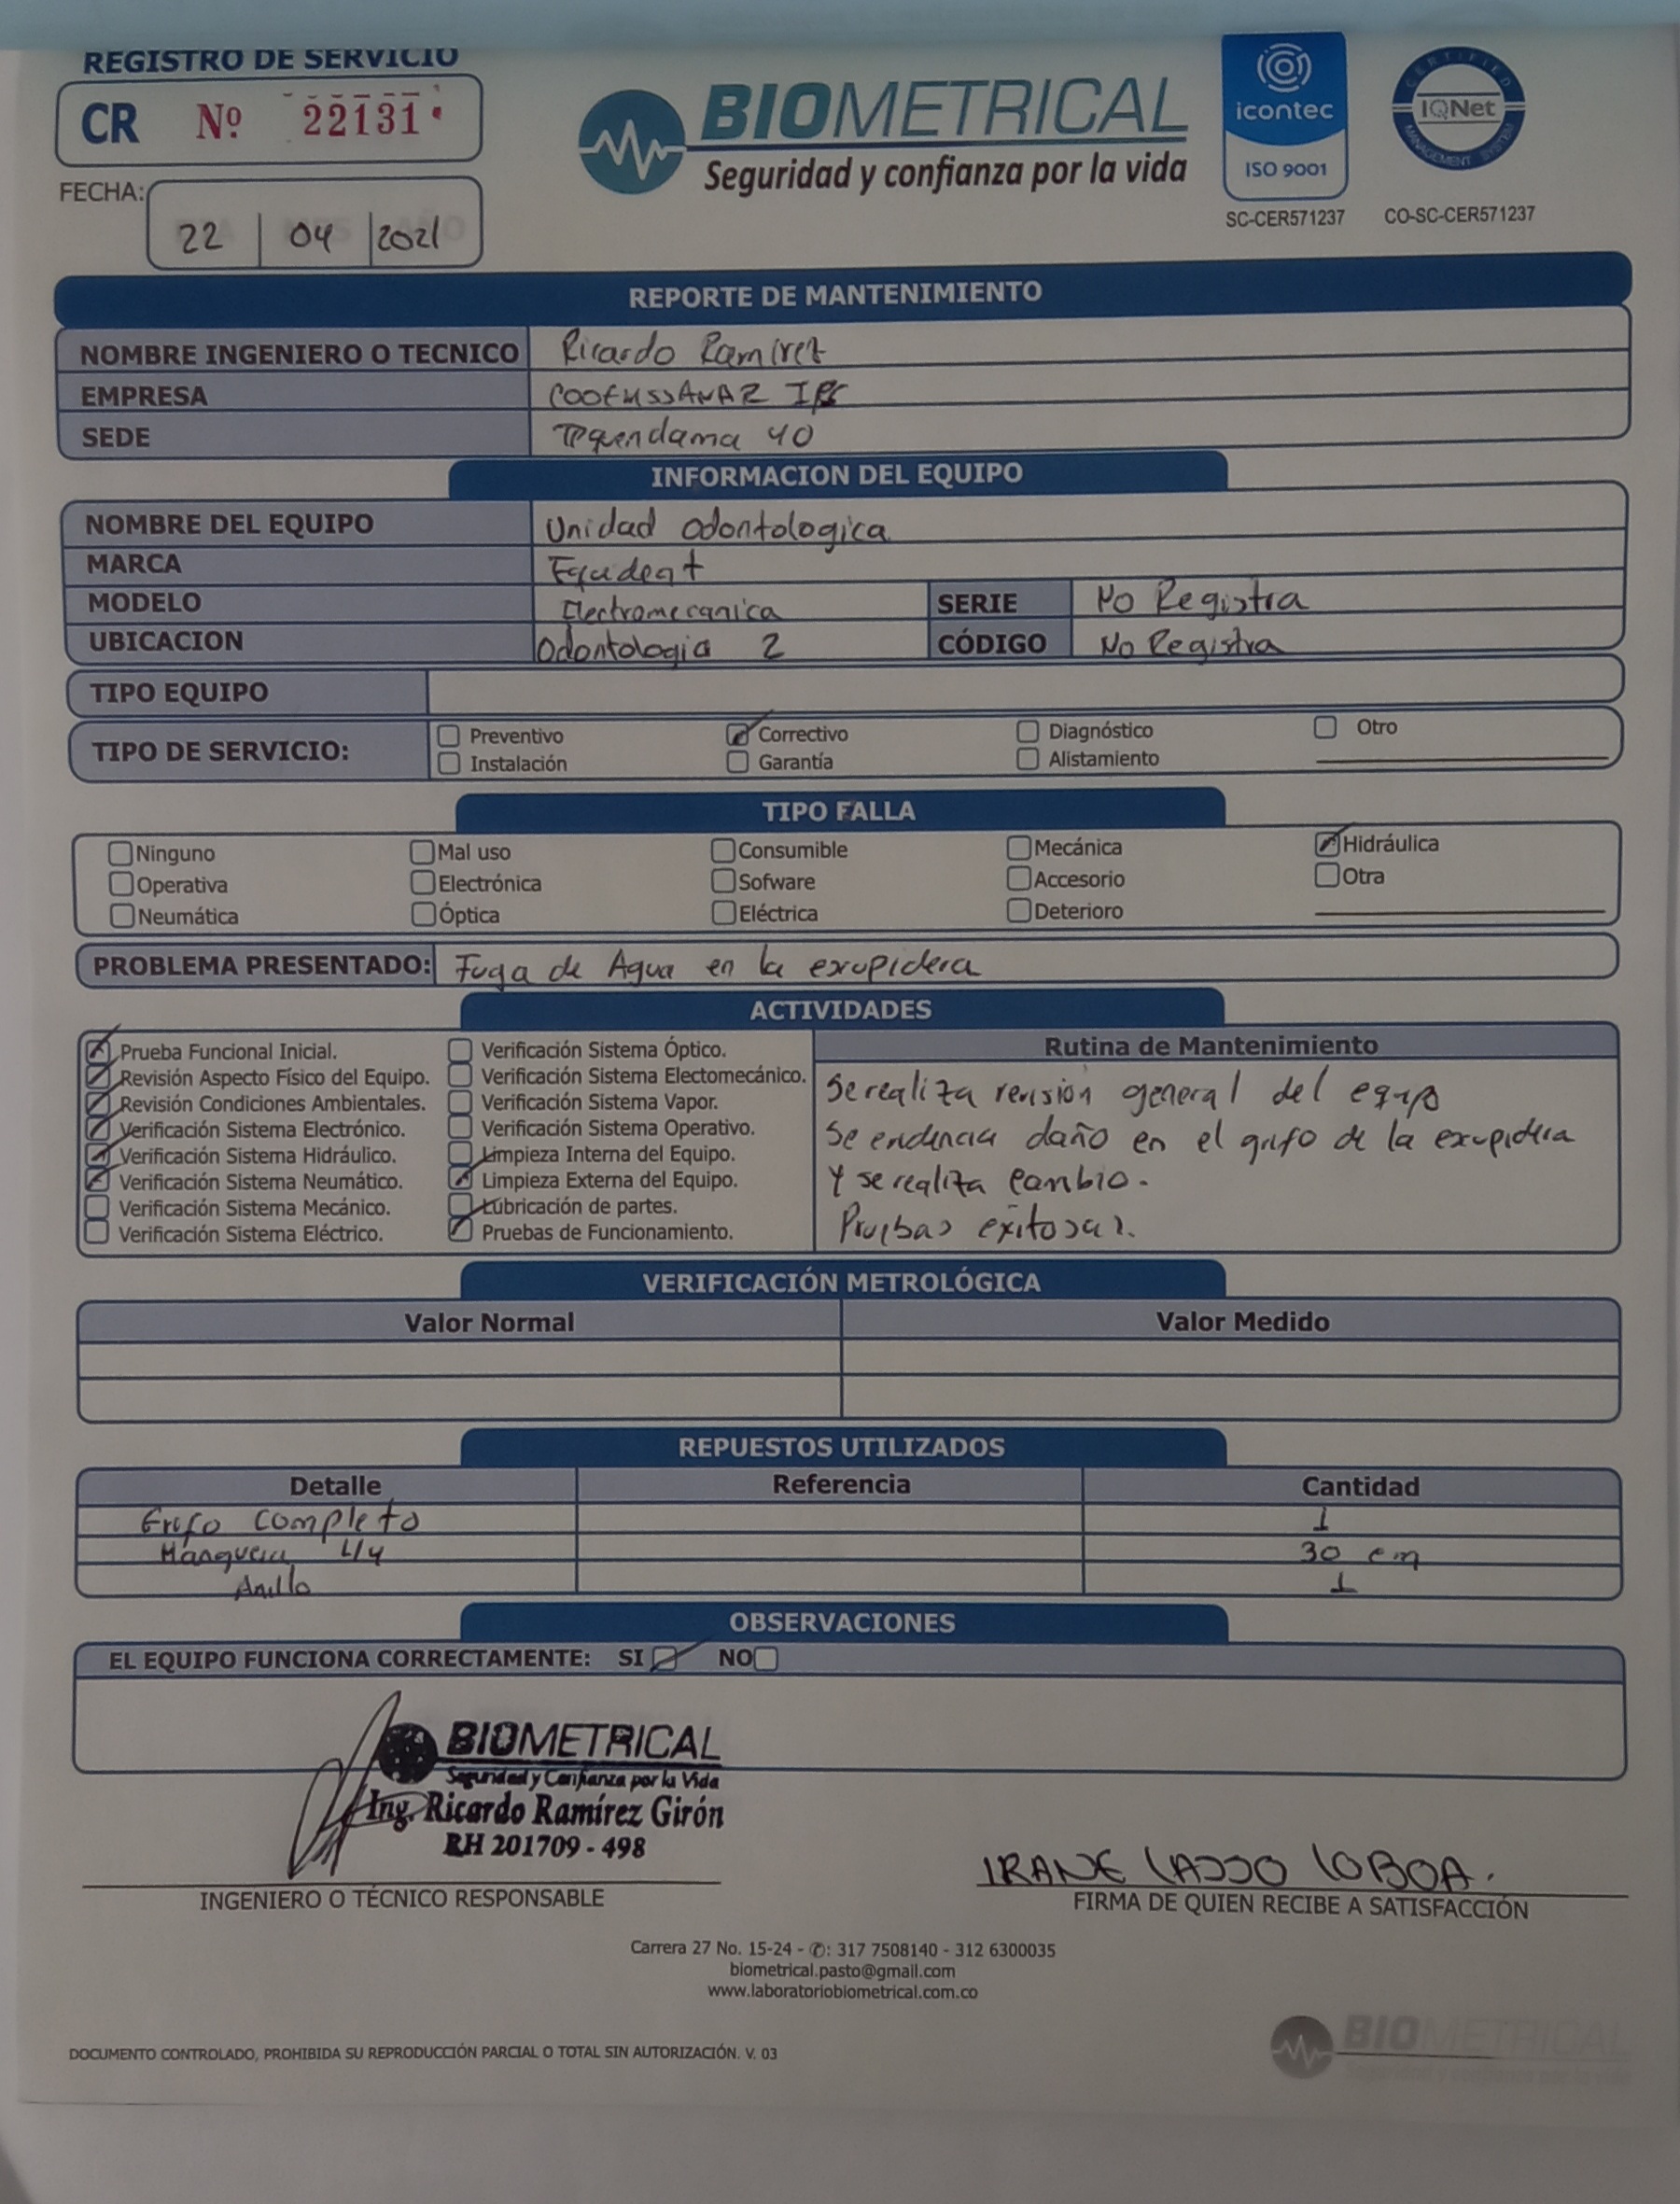 REGISTRO DE SERVICIO
CR Nº 22131
BIOMETRICAL
Seguridad y confianza por la vida
icontec
ISO 9001
SC-CER571237
CERTIFIED
IQNet
MANAGEMENT SYSTEM
CO-SC-CER571237
FECHA: 22 04 2021
REPORTE DE MANTENIMIENTO
NOMBRE INGENIERO O TECNICO Ricardo Ramirez
EMPRESA COOEMSSANAR IPS
SEDE Tequendama 40
INFORMACION DEL EQUIPO
NOMBRE DEL EQUIPO Unidad Odontologica
MARCA Equident
MODELO Electromecanica SERIE No Registra
UBICACION Odontologia 2 CÓDIGO No Registra
TIPO EQUIPO
TIPO DE SERVICIO: Preventivo Correctivo Diagnóstico Otro
Instalación Garantía Alistamiento
TIPO FALLA
Ninguno Mal uso Consumible Mecánica Hidráulica
Operativa Electrónica Sofware Accesorio Otra
Neumática Óptica Eléctrica Deterioro
PROBLEMA PRESENTADO: Fuga de Agua en la exupidera
ACTIVIDADES
Prueba Funcional Inicial.
Revisión Aspecto Físico del Equipo.
Revisión Condiciones Ambientales.
Verificación Sistema Electrónico.
Verificación Sistema Hidráulico.
Verificación Sistema Neumático.
Verificación Sistema Mecánico.
Verificación Sistema Eléctrico.
Verificación Sistema Óptico.
Verificación Sistema Electomecánico.
Verificación Sistema Vapor.
Verificación Sistema Operativo.
Limpieza Interna del Equipo.
Limpieza Externa del Equipo.
Lubricación de partes.
Pruebas de Funcionamiento.
Rutina de Mantenimiento
Se realiza revisión general del equipo
Se evidencia daño en el grifo de la exupidera
Y se realiza cambio.
Pruebas exitosas.
VERIFICACIÓN METROLÓGICA
Valor Normal Valor Medido
REPUESTOS UTILIZADOS
Detalle Referencia Cantidad
Grifo completo 1
Manguera 1/4 30 cm
Anillo 1
OBSERVACIONES
EL EQUIPO FUNCIONA CORRECTAMENTE: SI NO
BIOMETRICAL
Seguridad y Confianza por la Vida
Ing. Ricardo Ramírez Girón
RH 201709 - 498
INGENIERO O TÉCNICO RESPONSABLE
IRANE LASSO LOBOA.
FIRMA DE QUIEN RECIBE A SATISFACCIÓN
Carrera 27 No. 15-24 - ✆: 317 7508140 - 312 6300035
biometrical.pasto@gmail.com
www.laboratoriobiometrical.com.co
DOCUMENTO CONTROLADO, PROHIBIDA SU REPRODUCCIÓN PARCIAL O TOTAL SIN AUTORIZACIÓN. V. 03
BIOMETRICAL